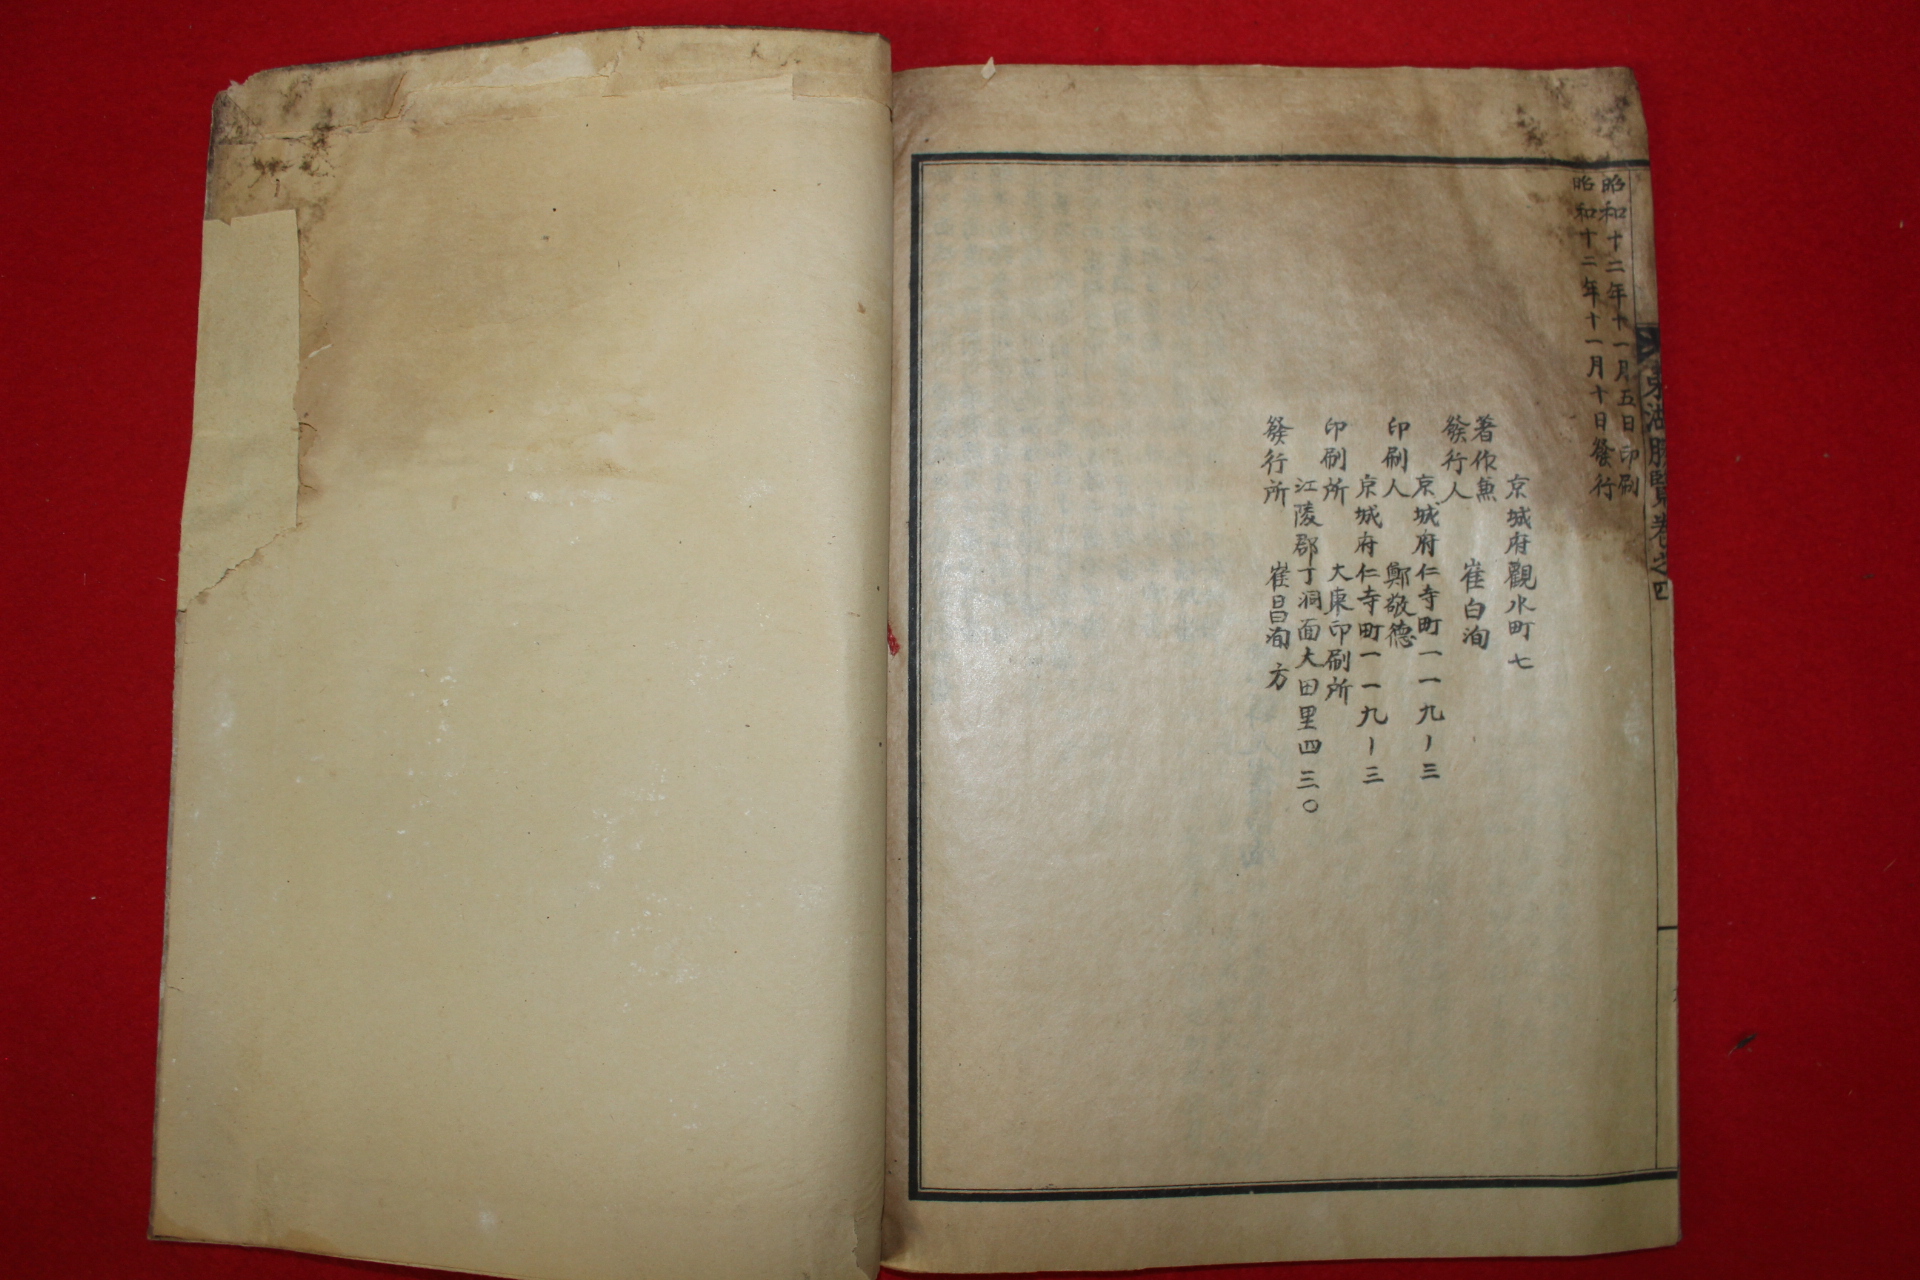 東湖勝覽卷之四
昭和十二年十一月五日印刷
昭和十二年十一月十日發行
京城府觀水町七
著作兼
發行人 崔白洵
京城府仁寺町一一九ノ三
印刷人 鄭敬德
京城府仁寺町一一九ノ三
印刷所 大東印刷所
江陵郡丁洞面大田里四三〇
發行所 崔昌洵方